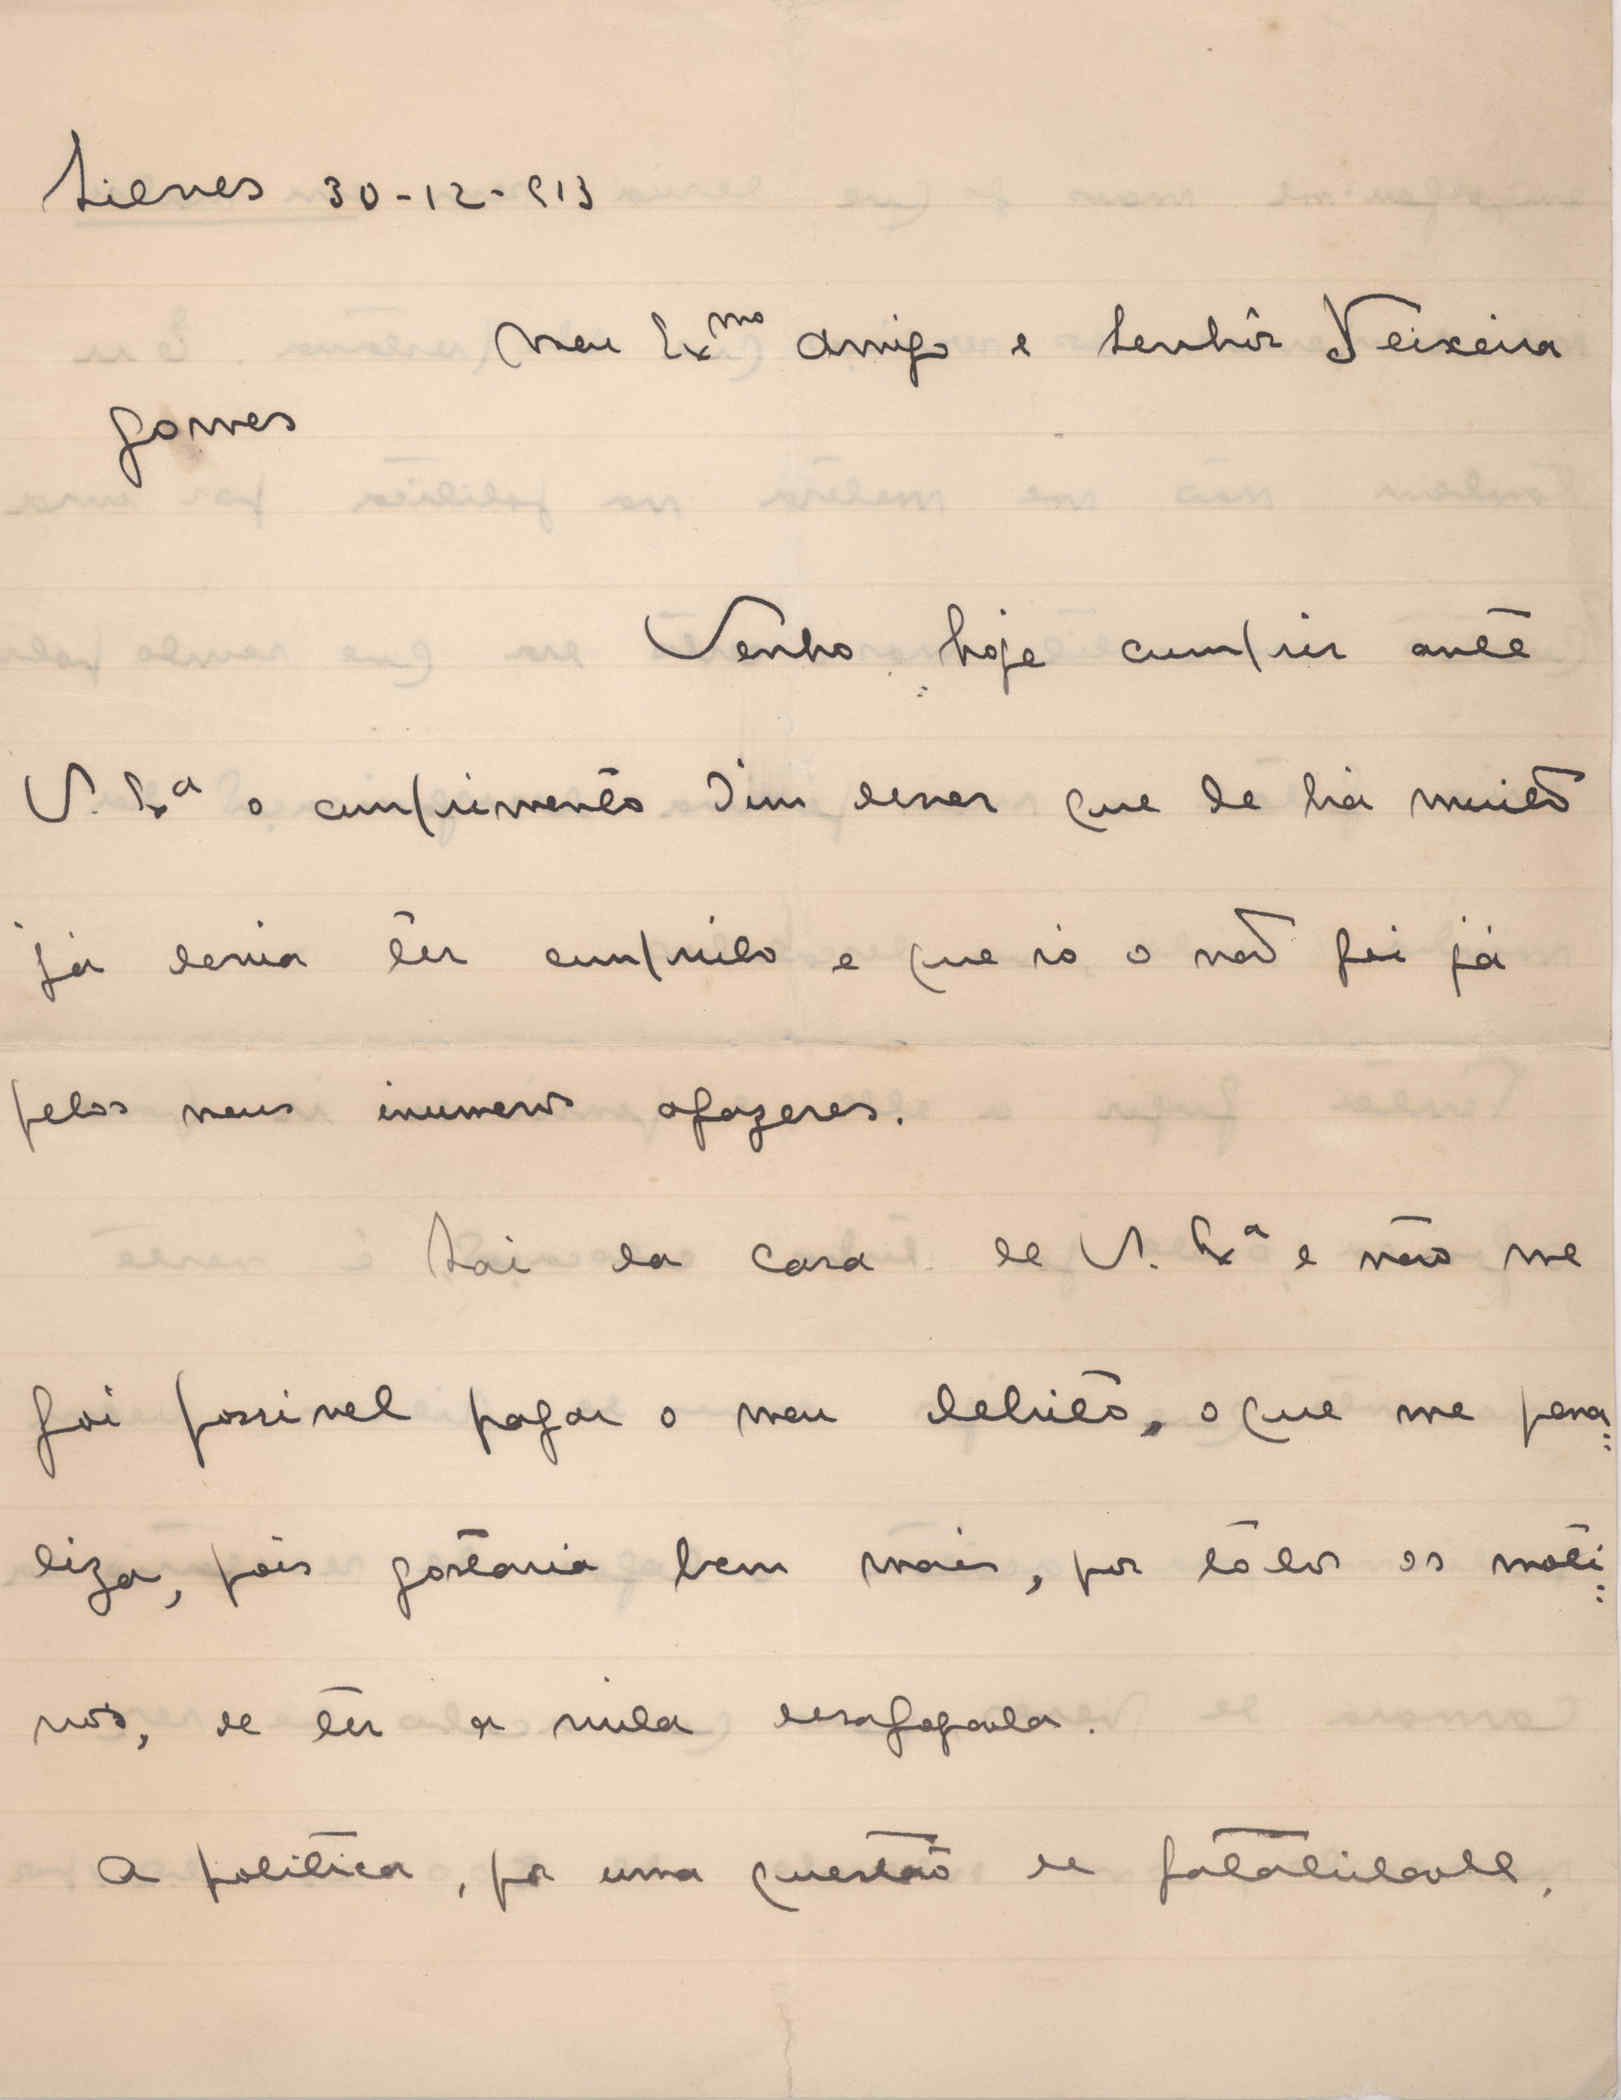 Sieves 30-12-913
Meu Exmo Amigo e Senhôr Teixeira
Gomes
Venho hoje cumprir ante
V. Exa o cumprimento d'um dever que de há muito
já devia têr cumprido e que só o não fei já
pelos meus inumeros afazeres.
Sai da casa de V. Exa e não me
foi possivel pagar o meu debito, o que me pena=
liza, pois gostaria bem mais, por todos os moti=
vos, de têr a vida desafogada.
A politica, por uma questão de fatalidade,